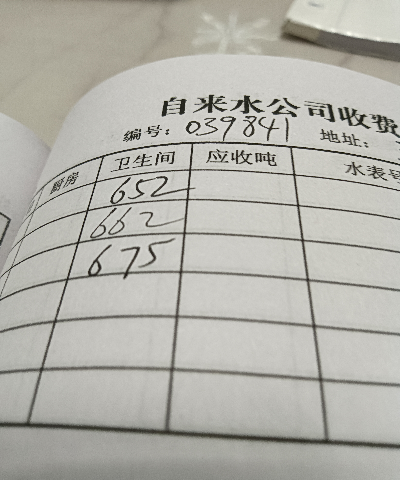 自来水公司收费
编号: 039841 地址:
厨房 卫生间 应收吨 水表号
652
662
675